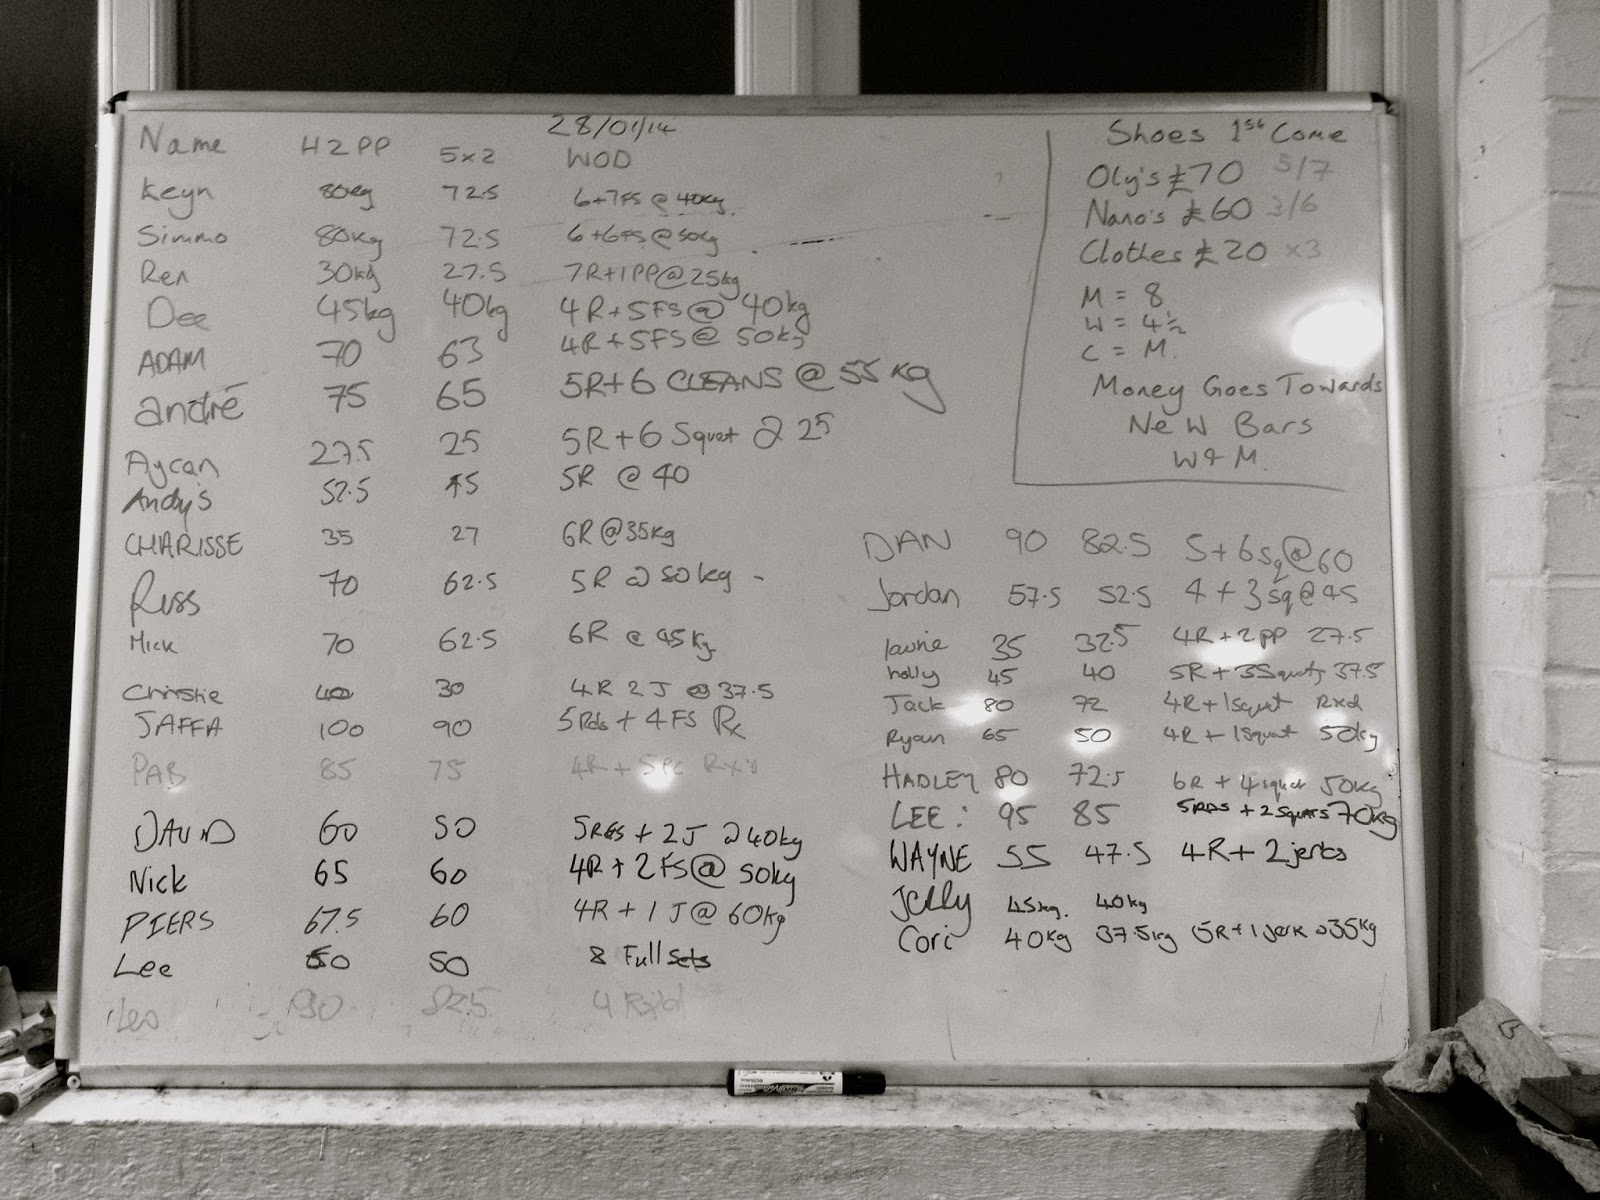 28/01/14
Name H2PP 5x2 WOD
Keyn 80kg 72.5 6+7FS @ 40kg.
Simmo 80kg 72.5 6+6FS @ 50kg
Ren 30kg 27.5 7R+1PP@25kg
Dee 45kg 40kg 4R+5FS@ 40kg
ADAM 70 63 4R+5FS@ 50kg
andré 75 65 5R+6 CLEANS @ 55kg
Aycan 27.5 25 5R+6 Squat @ 25
Andy's 52.5 45 5R @ 40
CHARISSE 35 27 6R @35kg
Russ 70 62.5 5R @ 50kg -
Mick 70 62.5 6R @ 45kg
Christie 40 30 4R 2J @ 37.5
JAFFA 100 90 5Rds + 4FS Rx
PAB 85 75 4R + 5PC Rx'd
DAVID 60 50 + 2J @ 40kg
Nick 65 60 4R + 2FS@ 50kg
PIERS 67.5 60 4R + 1J@ 60kg
Lee 50 50 8 Full Sets
90 82.5 4
Shoes 1st Come
Oly's £70 5/7
Nano's £60 3/6
Clothes £20 x3
M = 8
W = 4½
C = M.
Money Goes Towards
New Bars
W+M.
DAN 90 82.5 5+6Sq@60
Jordan 57.5 52.5 4+3sq@45
laurie 35 32.5 4R+2PP 27.5
holly 45 40 5R+3Squats 37.5
Jack 80 72 4R+1squat Rxd
Ryan 65 50 4R+1squat 50kg
HADLEY 80 72.5 6R + 4squat 50kg
LEE: 95 85 5RDS + 2SQUATS 70kg
WAYNE 55 47.5 4R+2jerks
Jelly 45kg. 40kg
Cori 40kg 37.5kg 5R+1Jerk @35kg